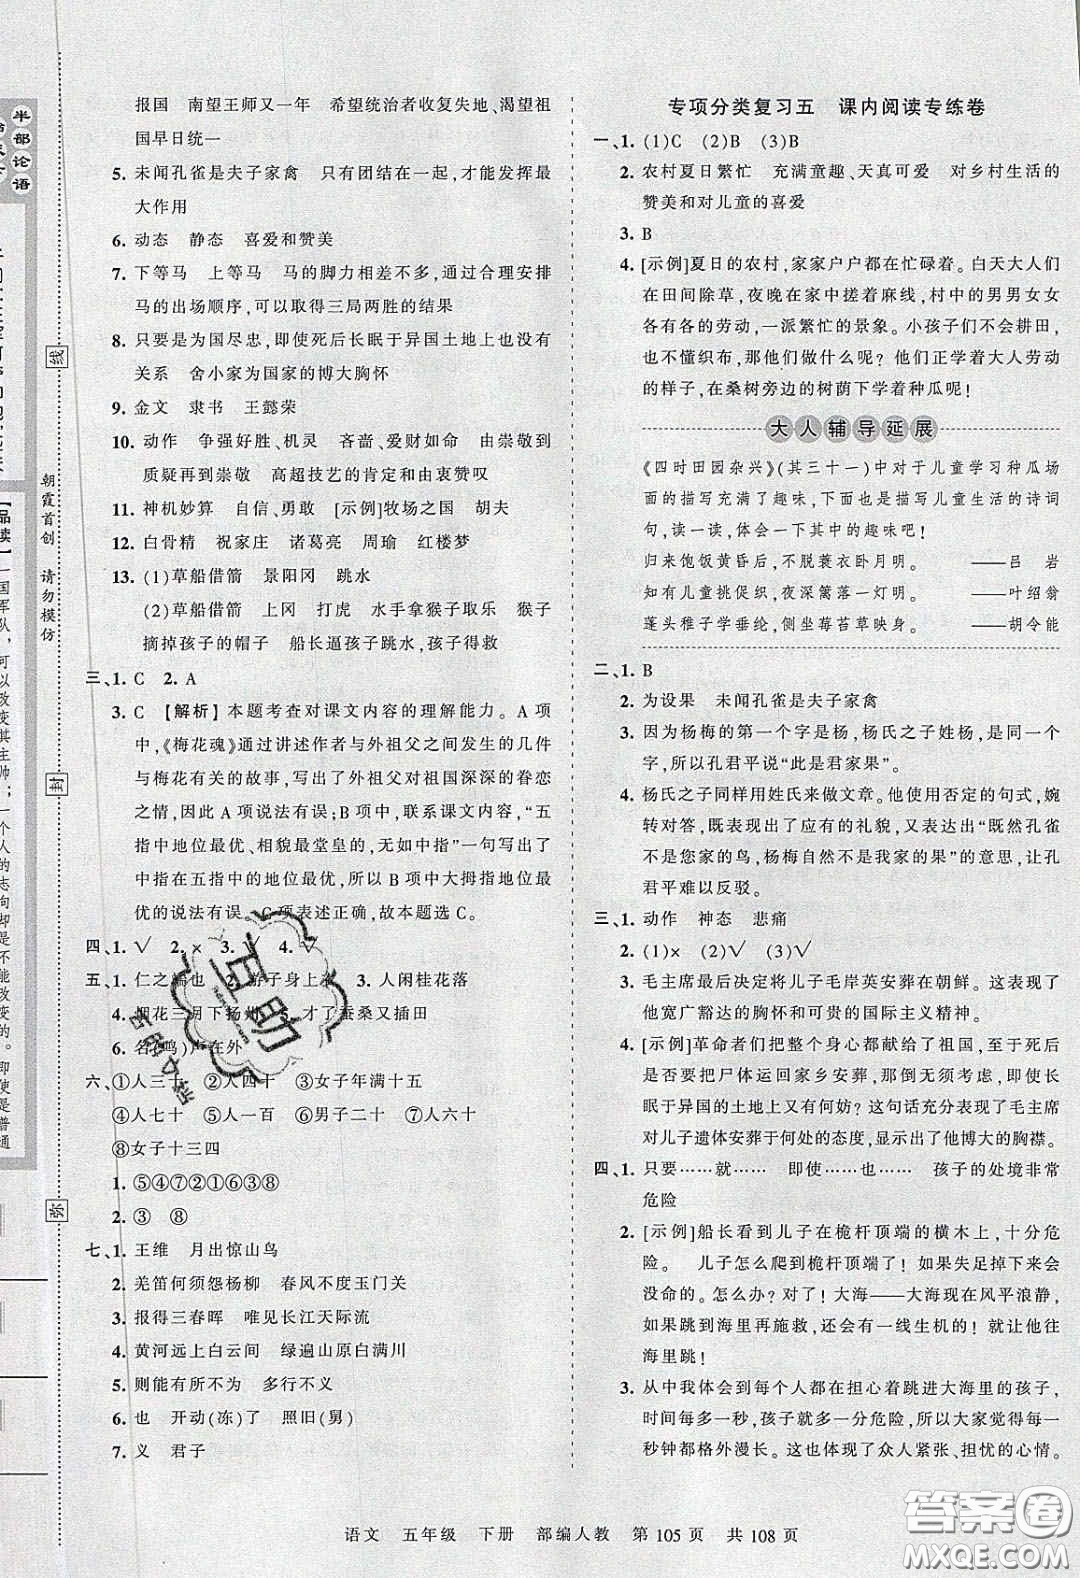 报国　南望王师又一年　希望统治者收复失地、渴望祖
国早日统一
5. 未闻孔雀是夫子家禽　只有团结在一起,才能发挥最
大作用
6. 动态　静态　喜爱和赞美
7. 下等马　上等马　马的脚力相差不大,通过合理安排
马的出场顺序,可以取得三局两胜的结果
8. 只要是为国尽忠,即使死后长眠于异国土地上也没有
关系　舍小家为国家的博大胸怀
9. 金文　隶书　王懿荣
10. 动作　争强好胜、机灵　吝啬、爱财如命　由崇敬到
质疑再到崇敬　高超技艺的肯定和由衷赞叹
11. 神机妙算　自信、勇敢　[示例]牧场之国　胡夫
12. 白骨精　祝家庄　诸葛亮　周瑜　红楼梦
13. (1)草船借箭　景阳冈　跳水
(2)草船借箭　上冈　打虎　水手拿猴子取乐　猴子
摘掉孩子的帽子　船长逼孩子跳水,孩子得救
三、1. C　2. A
3. C　【解析】本题考查对课文内容的理解能力。A 项
中,《梅花魂》通过讲述作者与外祖父之间发生的几件
与梅花有关的故事,写出了外祖父对祖国深深的眷恋
之情,因此 A 项说法有误;B 项中,联系课文内容,“五
指中地位最优、相貌最堂皇的,无如中指”一句写出了
中指在五指中的地位最优,所以 B 项中大拇指地位最
优的说法有误。C 项表述正确,故本题选 C。
四、1. √　2. ×　3. √　4. √
五、1. 仁之端也　2. 游子身上衣　3. 人闲桂花落
4. 烟花三月下扬州　5. 才了蚕桑又插田
6. 名(鸣)声在外
六、①人三十　②人四十　③女子年满十五
④人七十　⑤人一百　⑥男子二十　⑦人六十
⑧女子十三四
1. ⑤④⑦②①⑥③⑧
2. ③　⑧
七、1. 王维　月出惊山鸟
2. 羌笛何须怨杨柳　春风不度玉门关
3. 报得三春晖　唯见长江天际流
4. 黄河远上白云间　绿遍山原白满川
5. 则能有所不为　多行不义
6. 也　开动(冻)了　照旧(舅)
7. 义　君子
专项分类复习五　课内阅读专练卷
一、1. (1)C　(2)B　(3)B
2. 农村夏日繁忙　充满童趣、天真可爱　对乡村生活的
赞美和对儿童的喜爱
3. B
4. [示例]夏日的农村,家家户户都在忙碌着。白天大人们
在田间除草,夜晚在家中搓着麻线,村中的男男女女
各有各的劳动,一派繁忙的景象。小孩子们不会耕田,
也不懂织布,那他们做什么呢?他们正学着大人劳动
的样子,在桑树旁边的树荫下学着种瓜呢!
大人辅导延展
《四时田园杂兴》(其三十一)中对于儿童学习种瓜场
面的描写充满了趣味,下面也是描写儿童生活的诗词
句,读一读,体会一下其中的趣味吧!
归来饱饭黄昏后,不脱蓑衣卧月明。　——吕　岩
知有儿童挑促织,夜深篱落一灯明。　——叶绍翁
蓬头稚子学垂纶,侧坐莓苔草映身。　——胡令能
二、1. B
2. 为设果　未闻孔雀是夫子家禽
3. 因为杨梅的第一个字是杨,杨氏之子姓杨,同是一个
字,所以孔君平说“此是君家果”。
4. 杨氏之子同样用姓氏来做文章。他使用否定的句式,婉
转对答,既表现出了应有的礼貌,又表达出了“既然孔雀
不是您家的鸟,杨梅自然不是我家的果”的意思,让孔
君平难以反驳。
三、1. 动作　神态　悲痛
2. (1)×　(2)√　(3)√
3. 毛主席最后决定将儿子毛岸英安葬在朝鲜。这表现了
他宽广豁达的胸怀和可贵的国际主义精神。
4. [示例]革命者们把整个身心都献给了祖国,至于死后
是否要把尸体运回家乡安葬,那倒无须考虑,即使长
眠于异国的土地上又有何妨?这句话充分表现了毛主席
对儿子遗体安葬于何处的态度,显示出了他博大的胸襟。
四、1. 只要……就……　即使……也……　孩子的处境非常
危险
2. [示例]船长看到儿子在桅杆顶端的横木上,十分危
险。　儿子怎么爬到桅杆顶端了!如果失足掉下来会
没命的。怎么办?对了!大海——大海现在风平浪静,
如果跳到海里再施救,还会有一线生机的!快!往
海里跳!
3. 从中我体会到每个人都在担心着跳进大海里的孩子,
每多一秒,孩子就多一分危险,所以大家觉得每一
秒钟都格外漫长。这也体现了众人紧张、担忧的心情。
语文　五年级　下册　部编人教　第 105 页　共 108 页
半部论语
朝霞首创　请勿模仿
线
封
弥
互助
答案圈
MXQE.COM